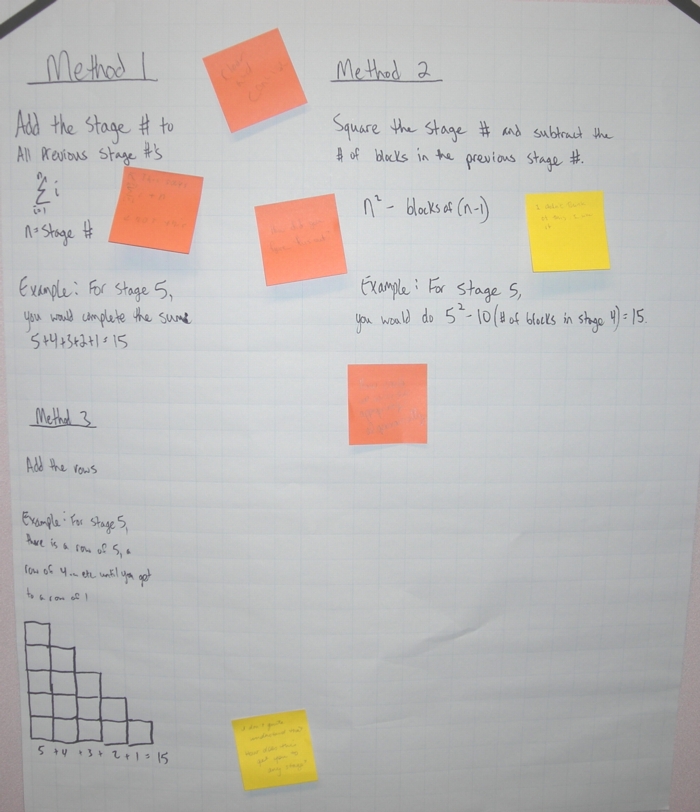 Method 1
Add the stage # to
All Previous Stage #'s
n
Σ i
i=1
n = Stage #
Example: For stage 5,
you would complete the sum
5+4+3+2+1=15
Method 2
Square the stage # and subtract the
# of blocks in the previous stage #.
n² - blocks of (n-1)
Example: For stage 5,
you would do 5²-10(# of blocks in stage 4)=15.
Method 3
Add the rows
Example: For Stage 5,
there is a row of 5, a
row of 4... etc until you get
to a row of 1
5 +4 +3+ 2+1= 15
I don't quite
understand this?
How does this
get you to
any stage?